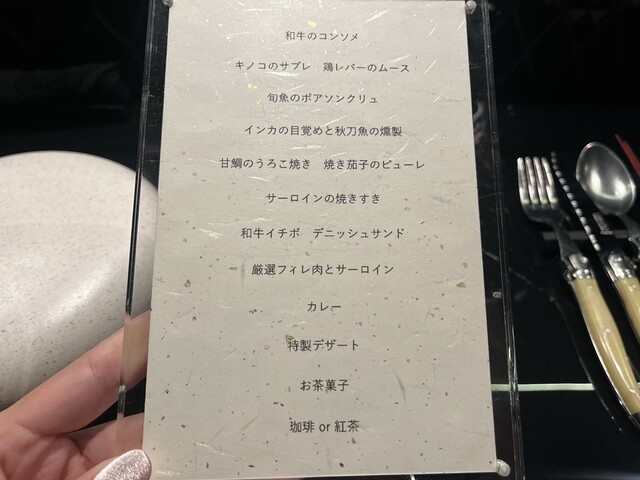 和牛のコンソメ
キノコのサブレ　鶏レバーのムース
旬魚のポアソンクリュ
インカの目覚めと秋刀魚の燻製
甘鯛のうろこ焼き　焼き茄子のピューレ
サーロインの焼きすき
和牛イチボ　デニッシュサンド
厳選フィレ肉とサーロイン
カレー
特製デザート
お茶菓子
珈琲 or 紅茶